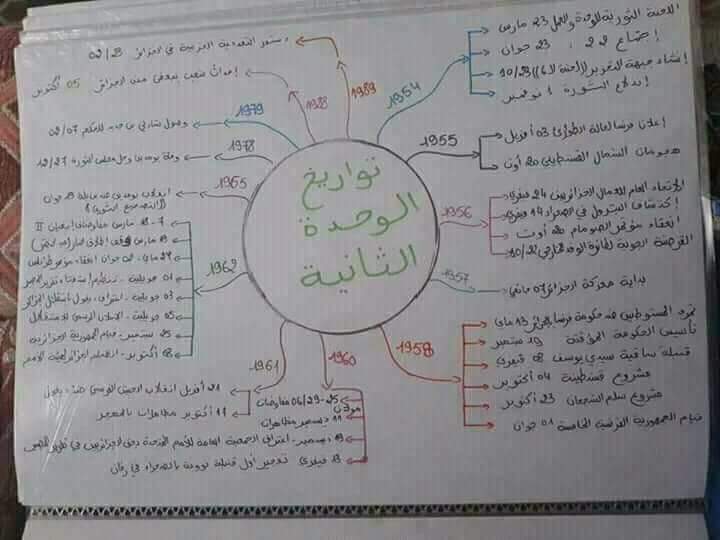 تواريخ
الوحدة
الثانية
1954
اللجنة الثورية للوحدة والعمل 23 مارس
إجتماع 22 ، 23 جوان
إنشاء جبهة التحرير (لجنة الـ6) 10/23
إندلاع الثورة 1 نوفمبر
1955
إعلان فرنسا لحالة الطوارئ 03 أفريل
هجومات الشمال القسنطيني 20 أوت
1956
الإتحاد العام للعمال الجزائريين 24 فيفري
إكتشاف البترول في الصحراء 14 فيفري
انعقاد مؤتمر الصومام 20 أوت
القرصنة الجوية لطائرة الوفد الخارجي 10/22
1957
بداية معركة الجزائر 07 جانفي
1958
تمرد المستوطنين ضد حكومة فرنسا بالجزائر 13 ماي
تأسيس الحكومة المؤقتة 19 سبتمبر
قنبلة ساقية سيدي يوسف 08 فيفري
مشروع قسنطينة 04 أكتوبر
مشروع سلم الشجعان 23 أكتوبر
قيام الجمهورية الفرنسية الخامسة 01 جوان
1960
25-06/29 مفاوضات مولان
11 ديسمبر مظاهرات
19 ديسمبر - اعتراف الجمعية العامة للأمم المتحدة بحق الجزائريين في تقرير المصير
13 فيفري تفجير أول قنبلة نووية بالصحراء في رقان
1961
21 أفريل انقلاب الجيش الفرنسي ضد ديغول
11 أكتوبر مظاهرات بالمهجر
1962
7-18 مارس مفاوضات إيفيان II
19 مارس وقف إطلاق النار
27 ماي - 04 جوان انعقاد مؤتمر طرابلس
01 جويلية - تنظيم إستفتاء تقرير المصير
03 جويلية - اعتراف ديغول باستقلال الجزائر
05 جويلية - الإعلان الرسمي للاستقلال
25 سبتمبر - قيام الجمهورية الجزائرية
08 أكتوبر - انضمام الجزائر لهيئة الأمم
1965
انقلاب بومدين ضد بن بلة 19 جوان
(التصحيح الثوري)
1978
وفاة بومدين وحل مجلس الثورة 12/27
1979
وصول الشاذلي بن جديد للحكم 02/07
1988
أحداث شغب ببعض مدن الجزائر 05 أكتوبر
1989
دستور التعددية الحزبية في الجزائر 02/23